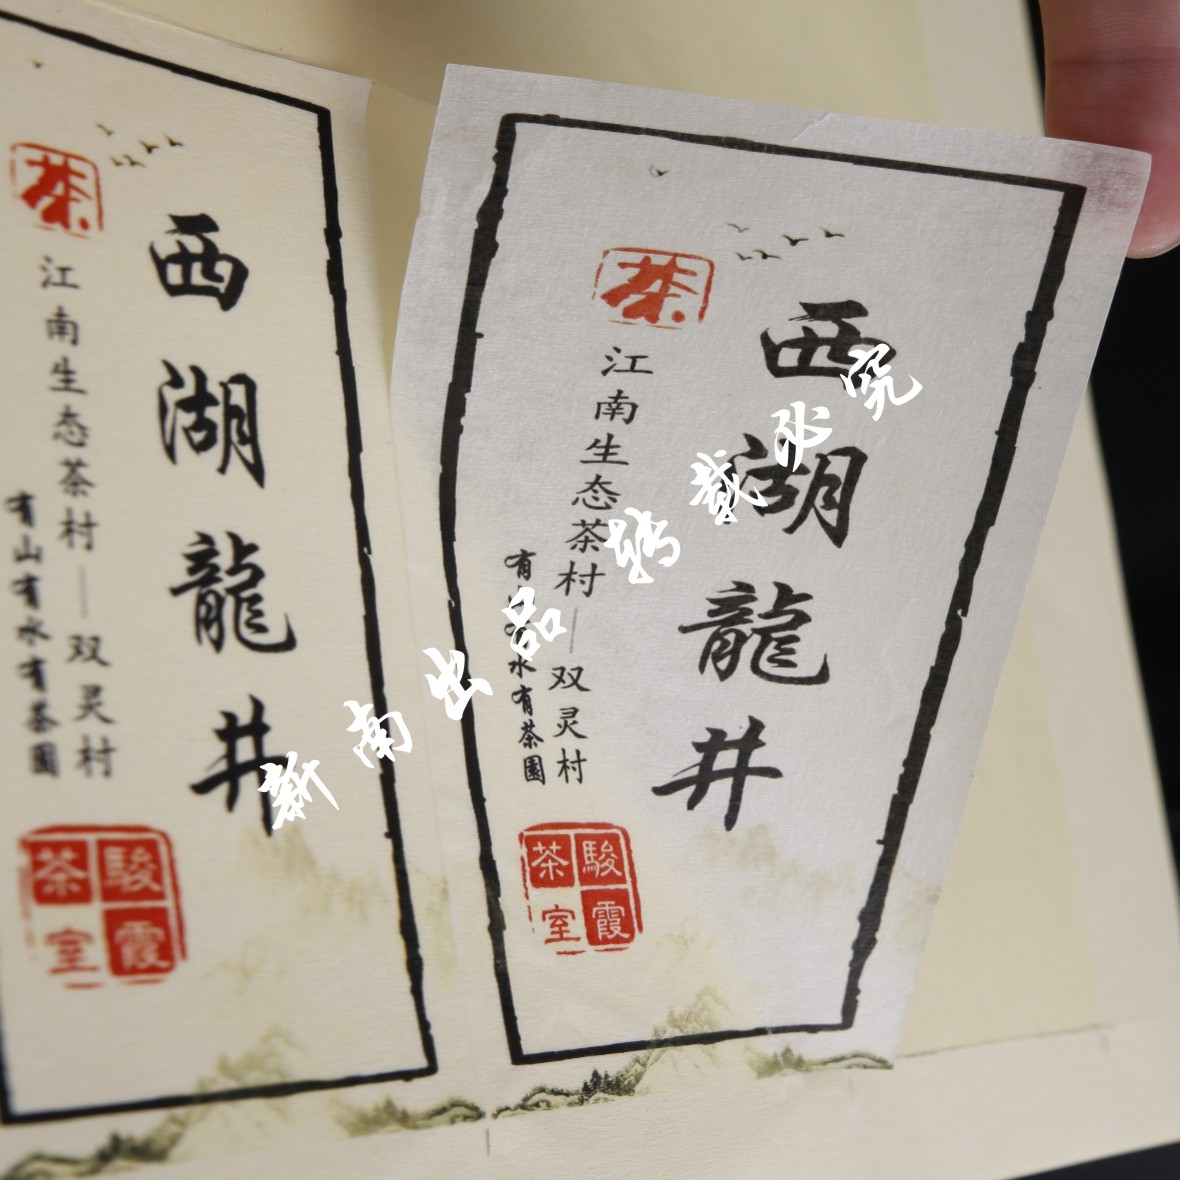 茶
西湖龍井
江南生态茶村——双灵村
有山有水有茶園
駿霞茶室
茶
西湖龍井
江南生态茶村——双灵村
有山有水有茶園
駿霞茶室
新南出品 转载必究